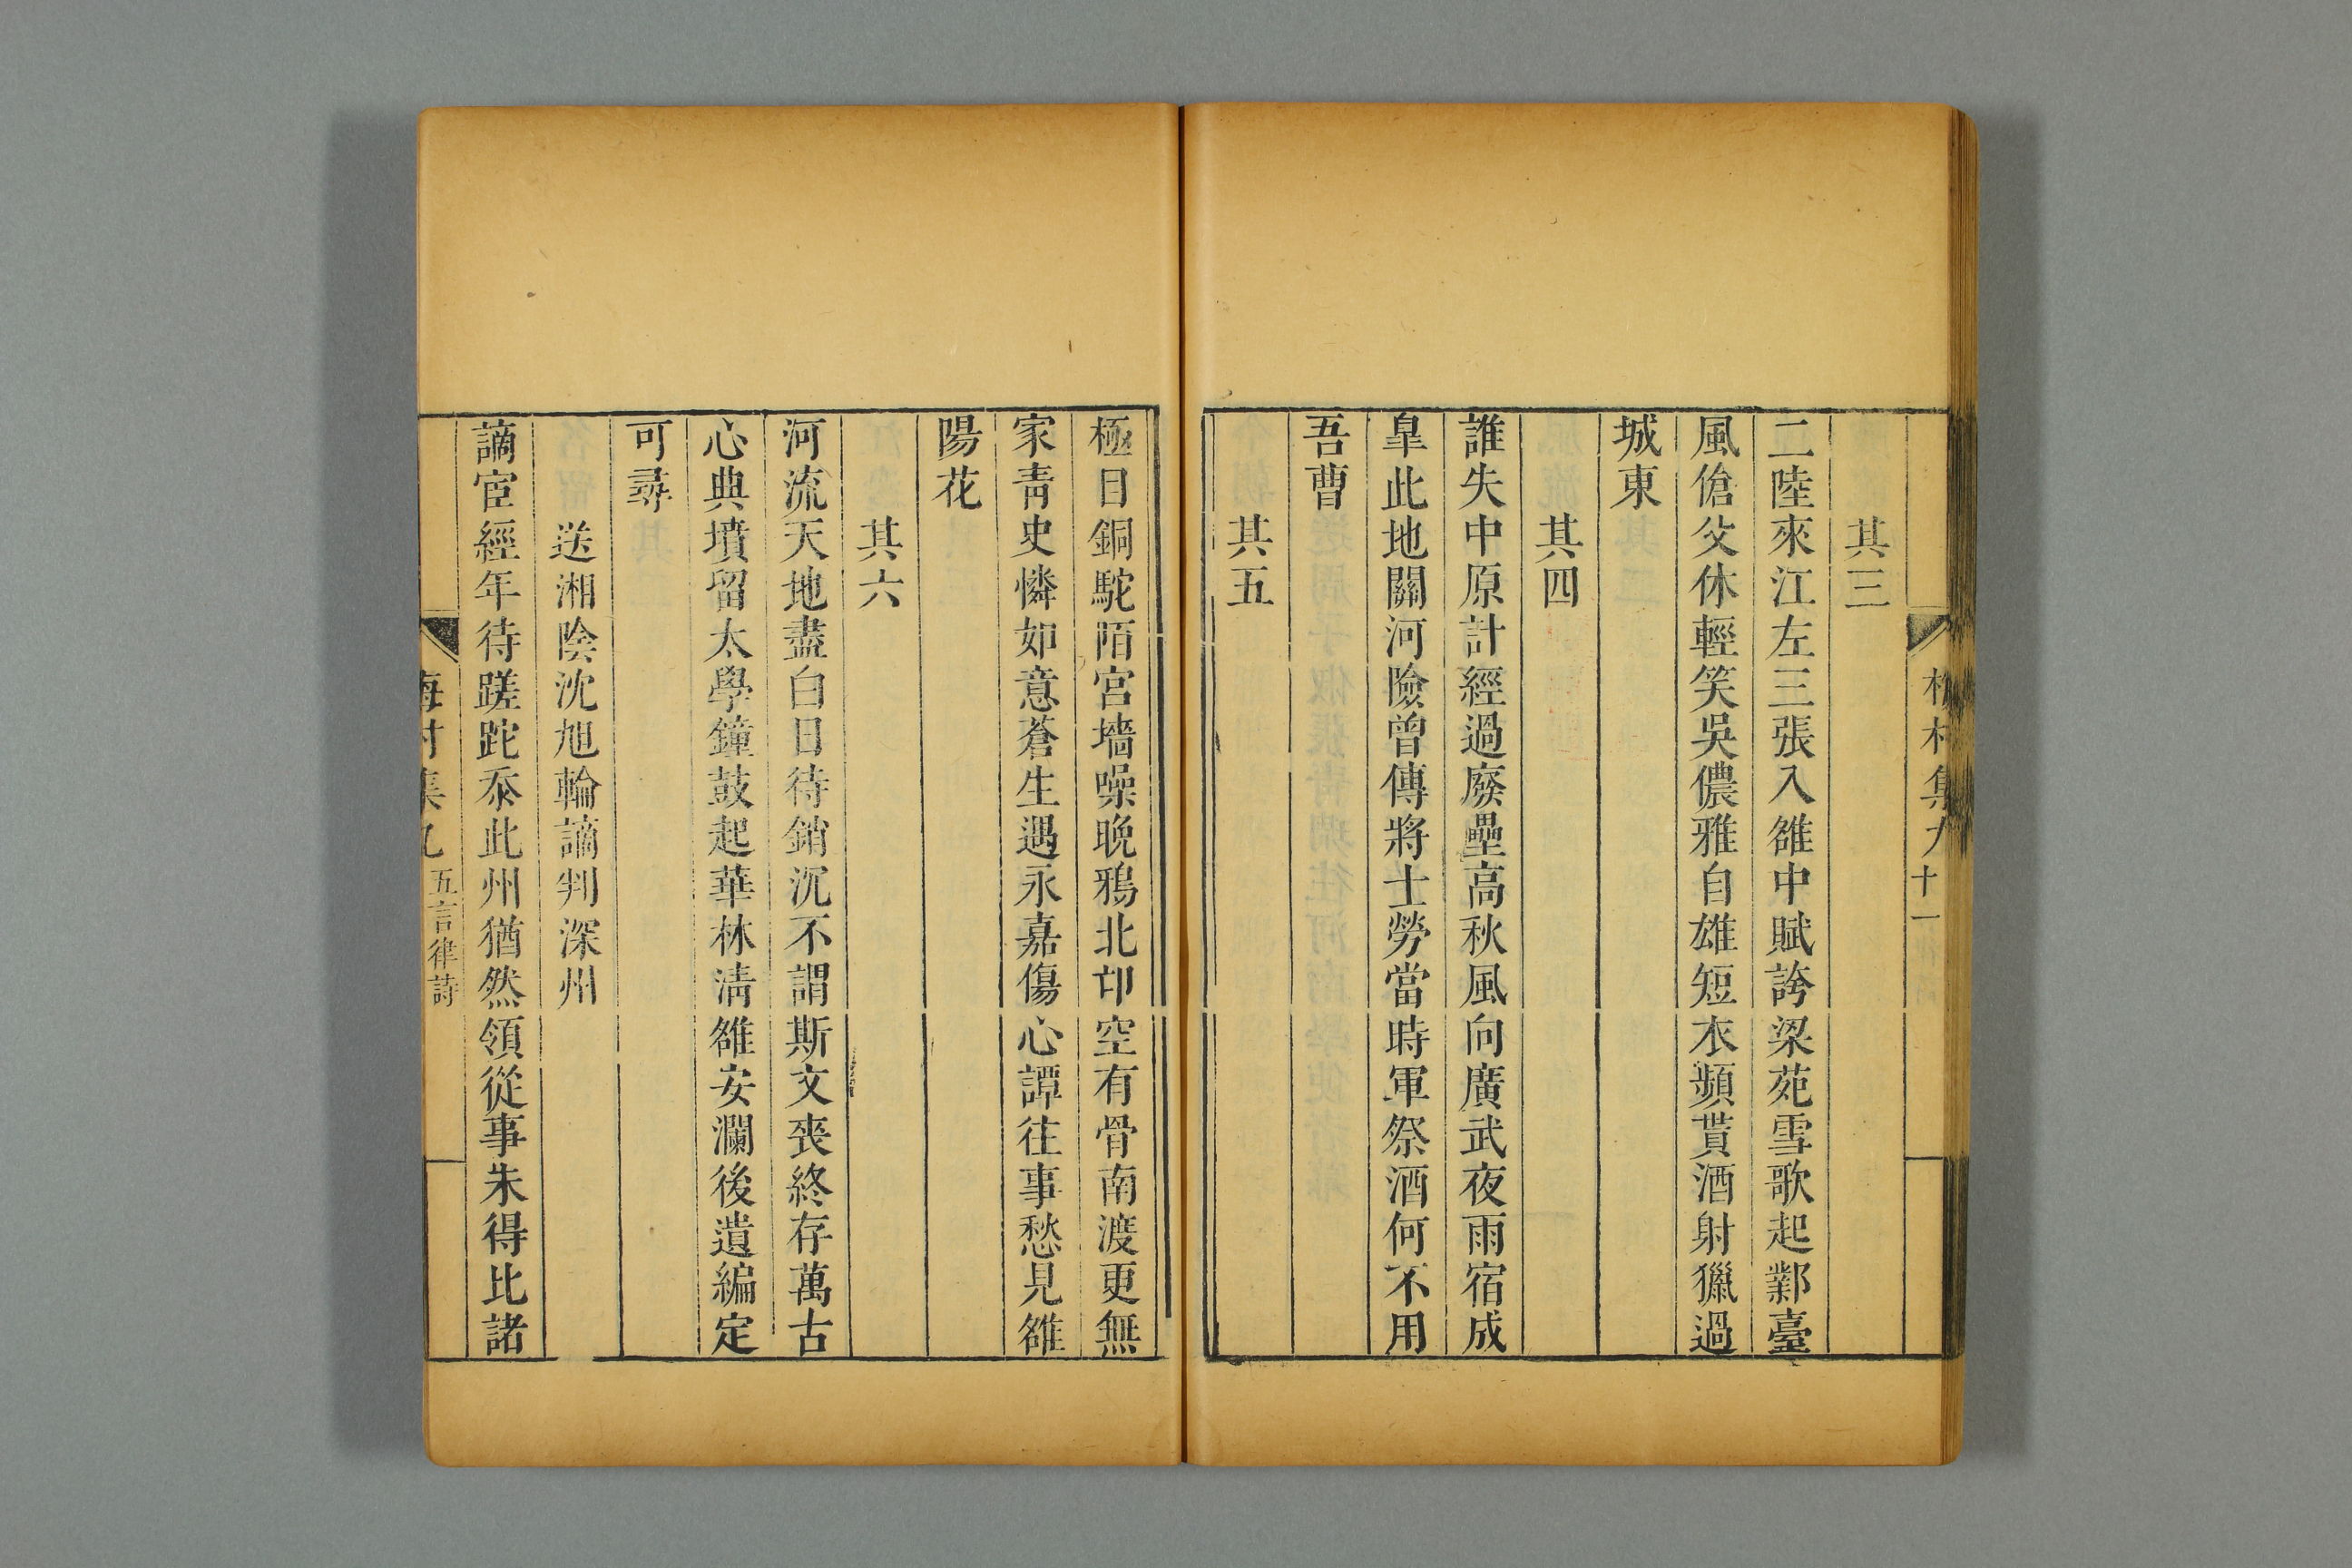 梅村集九 十一
其三
二陸來江左三張入雒中賦誇梁苑雪歌起鄴臺
風傖父休輕笑吳儂雅自雄短衣頻貰酒射獵過
城東
其四
誰失中原計經過廢壘高秋風向廣武夜雨宿成
皐此地關河險曾傳將士勞當時軍祭酒何不用
吾曹
其五
極目銅駝陌宮墻噪晚鴉北邙空有骨南渡更無
家青史憐如意蒼生遇永嘉傷心譚往事愁見雒
陽花
其六
河流天地盡白日待銷沉不謂斯文喪終存萬古
心典墳留太學鐘鼓起華林淸雒安瀾後遺編定
可尋
送湘陰沈旭輪謫判深州
謫宦經年待蹉跎忝此州猶然領從事朱得比諸
梅村集九 五言律詩